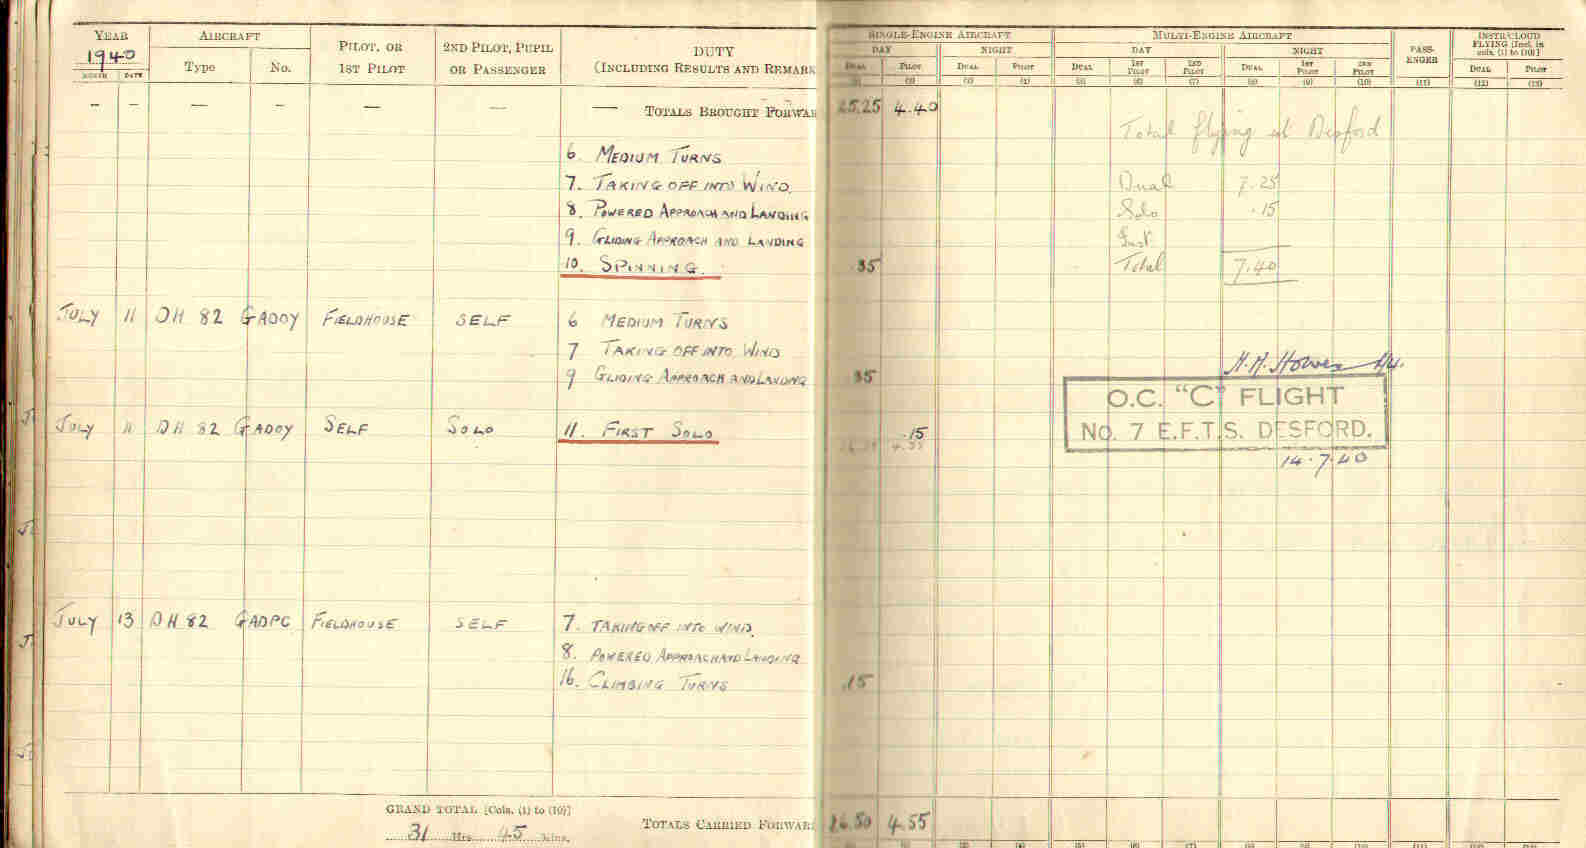 YEAR AIRCRAFT PILOT, OR 1ST PILOT 2ND PILOT, PUPIL OR PASSENGER DUTY (INCLUDING RESULTS AND REMARK SINGLE-ENGINE AIRCRAFT MULTI-ENGINE AIRCRAFT PASS-ENGER INSTR/CLOUD FLYING [Incl. in cols. (1) to (10)]
1940 Type No. DAY NIGHT DAY NIGHT DUAL PILOT
MONTH DATE DUAL PILOT DUAL PILOT DUAL 1ST PILOT 2ND PILOT DUAL 1ST PILOT 2ND PILOT
(2) (3) (4) (5) (6) (7) (8) (9) (10) (11) (12) (13)
— — — — — — — TOTALS BROUGHT FORWAR 25.25 4.40
Total flying at Desford
6. MEDIUM TURNS
7. TAKING OFF INTO WIND. Dual 7.25
8. POWERED APPROACH AND LANDING Solo .15
9. GLIDING APPROACH AND LANDING Inst
10. SPINNING. 35 Total 7.40
JULY 11 DH 82 GADOY FIELDHOUSE SELF 6 MEDIUM TURNS
7 TAKING OFF INTO WIND
9 GLIDING APPROACH AND LANDING 35
O.C. "C" FLIGHT
JULY 11 DH 82 GADOY SELF SOLO 11. FIRST SOLO .15 NO. 7 E.F.T.S. DESFORD.
14.7.40
JULY 13 DH 82 GADPG FIELDHOUSE SELF 7. TAKING OFF INTO WIND.
8. POWERED APPROACH AND LANDING
16. CLIMBING TURNS .15
GRAND TOTAL [Cols. (1) to (10)]
31 Hrs. 45 Mins. TOTALS CARRIED FORWAR 26.50 4.55